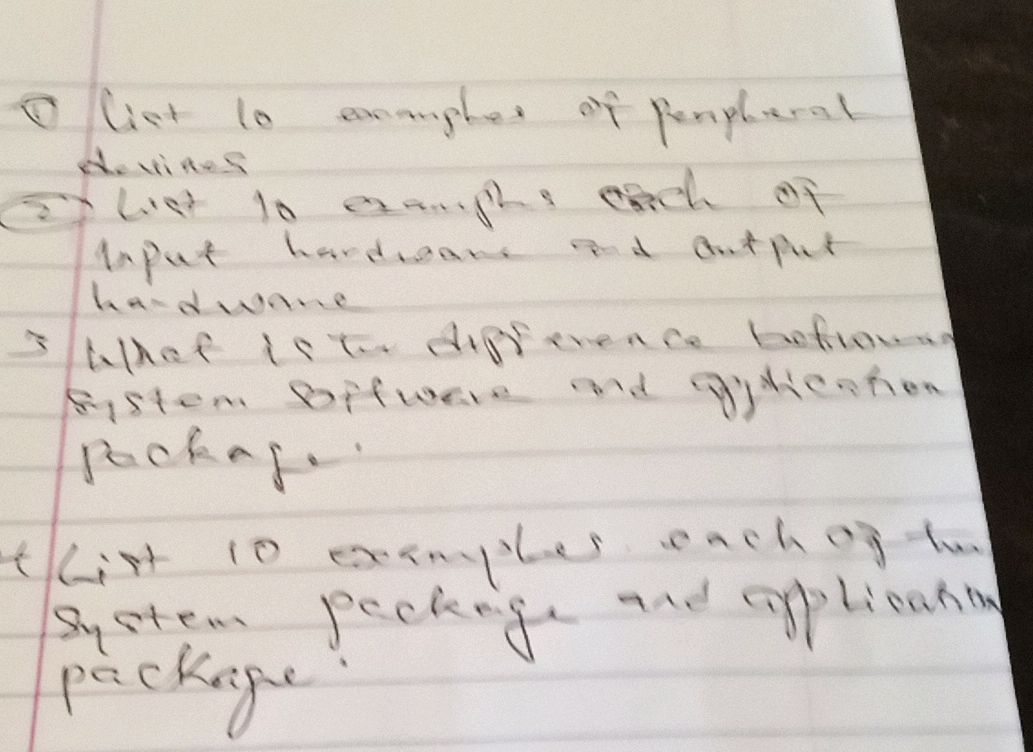 ① List 10 examples of peripheral
devices
② List 10 examples each of
Input hardware and output
hardware
3 What is the difference between
System Software and application
package.
4 List 10 examples each of the
System package and application
package.